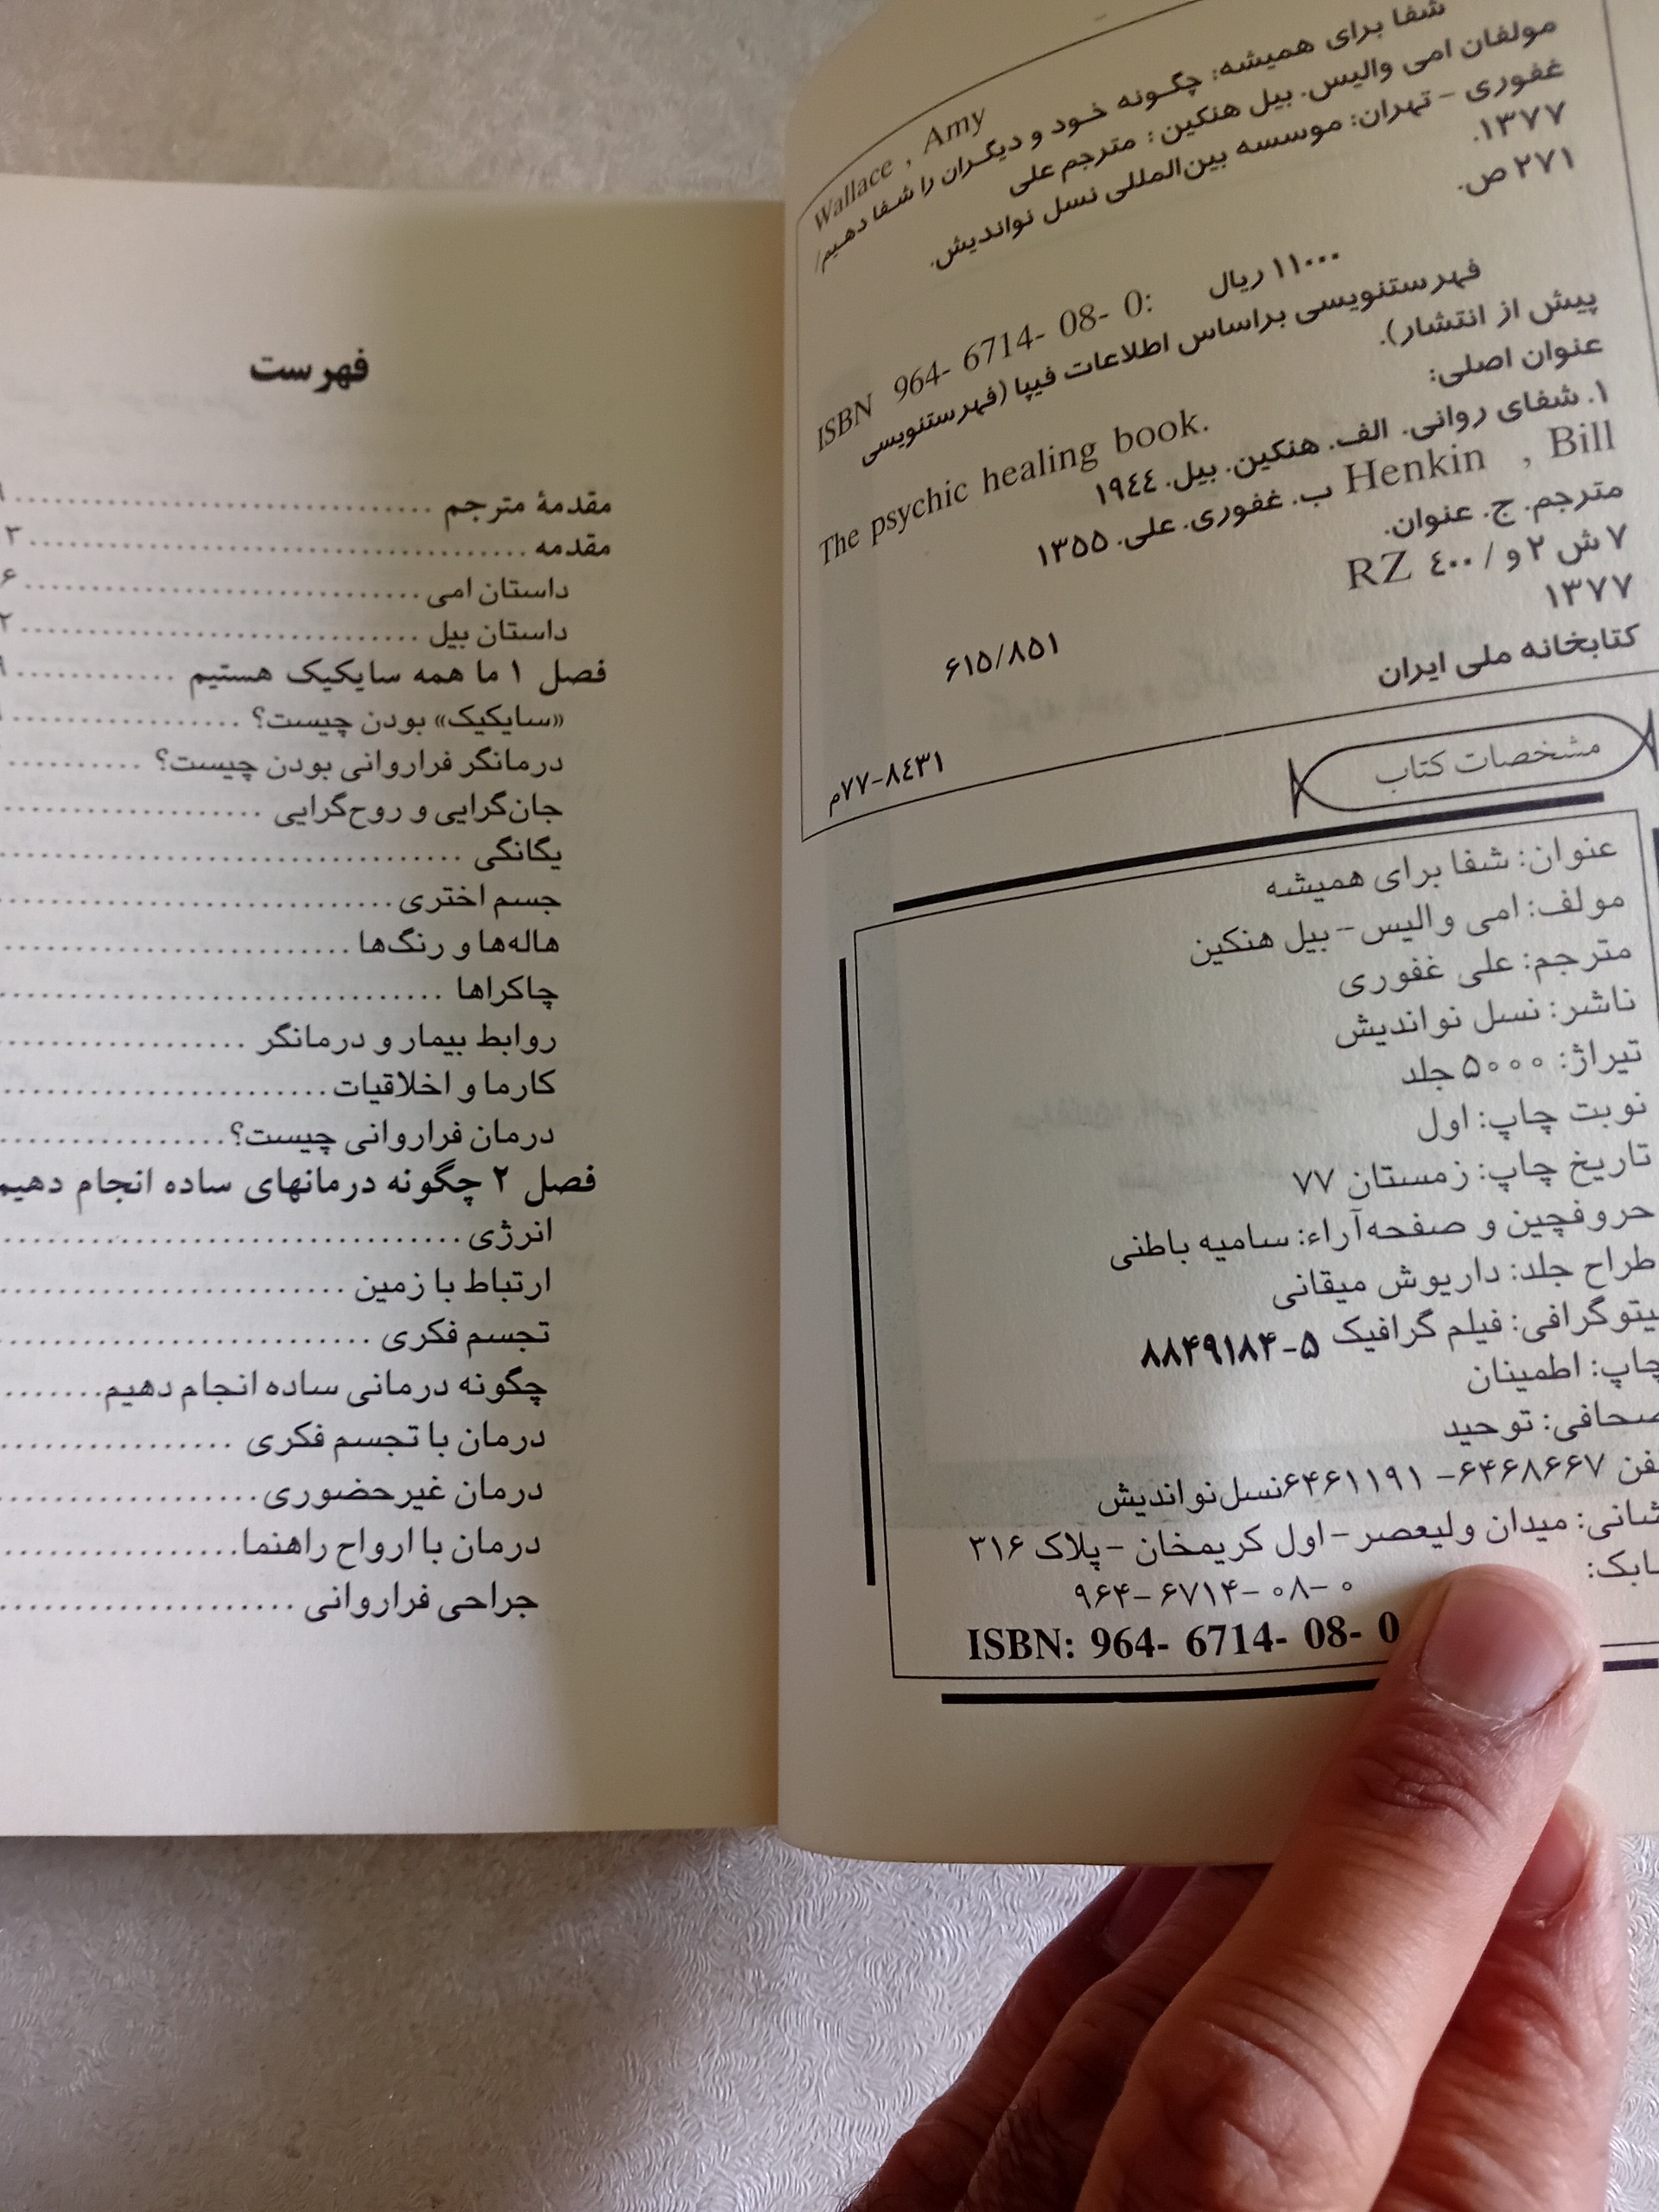 Wallace , Amy
شفا برای همیشه: چگونه خود و دیگران را شفا دهیم/
مولفان امی والیس. بیل هنکین : مترجم علی
غفوری - تهران: موسسه بین‌المللی نسل نواندیش.
۱۳۷۷.
۲۷۱ ص.
ISBN 964- 6714- 08- 0: ۱۱۰۰۰ ریال
فهرستنویسی براساس اطلاعات فیپا (فهرستنویسی
پیش از انتشار).
عنوان اصلی:
The psychic healing book.
۱. شفای روانی. الف. هنکین. بیل. ۱۹٤٤
Henkin , Bill ب. غفوری. علی. ۱۳۵۵
مترجم. ج. عنوان.
۷ ش ۲ و / ٤۰۰ RZ
۱۳۷۷
۶۱۵/۸۵۱
کتابخانه ملی ایران
۷۷-۸٤۳۱م
مشخصات کتاب
عنوان: شفا برای همیشه
مولف: امی والیس - بیل هنکین
مترجم: علی غفوری
ناشر: نسل نواندیش
تیراژ: ۵۰۰۰ جلد
نوبت چاپ: اول
تاریخ چاپ: زمستان ۷۷
حروفچین و صفحه‌آراء: سامیه باطنی
طراح جلد: داریوش میقانی
یتوگرافی: فیلم گرافیک ۵-۸۸۴۹۱۸۴
چاپ: اطمینان
صحافی: توحید
فن ۶۴۶۸۶۶۷ - ۶۴۶۱۱۹۱ نسل‌نواندیش
شانی: میدان ولیعصر - اول کریمخان - پلاک ۳۱۶
ابک:
۹۶۴- ۶۷۱۴- ۰۸- ۰
ISBN: 964- 6714- 08- 0
فهرست
مقدمهٔ مترجم
مقدمه ۳
داستان امی ۶
داستان بیل ۲
فصل ۱ ما همه سایکیک هستیم
«سایکیک» بودن چیست؟
درمانگر فراروانی بودن چیست؟
جان‌گرایی و روح‌گرایی
یگانگی
جسم اختری
هاله‌ها و رنگ‌ها
چاکراها
روابط بیمار و درمانگر
کارما و اخلاقیات
درمان فراروانی چیست؟
فصل ۲ چگونه درمانهای ساده انجام دهیم
انرژی
ارتباط با زمین
تجسم فکری
چگونه درمانی ساده انجام دهیم
درمان با تجسم فکری
درمان غیرحضوری
درمان با ارواح راهنما
جراحی فراروانی